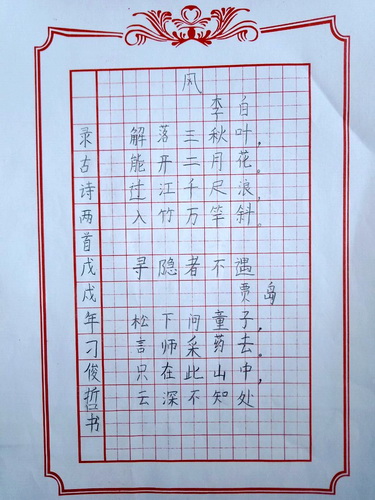 风
李白
解落三秋叶，
能开二月花。
过江千尺浪，
入竹万竿斜。
寻隐者不遇
贾岛
松下问童子，
言师采药去。
只在此山中，
云深不知处
录古诗两首戊戌年刁俊哲书